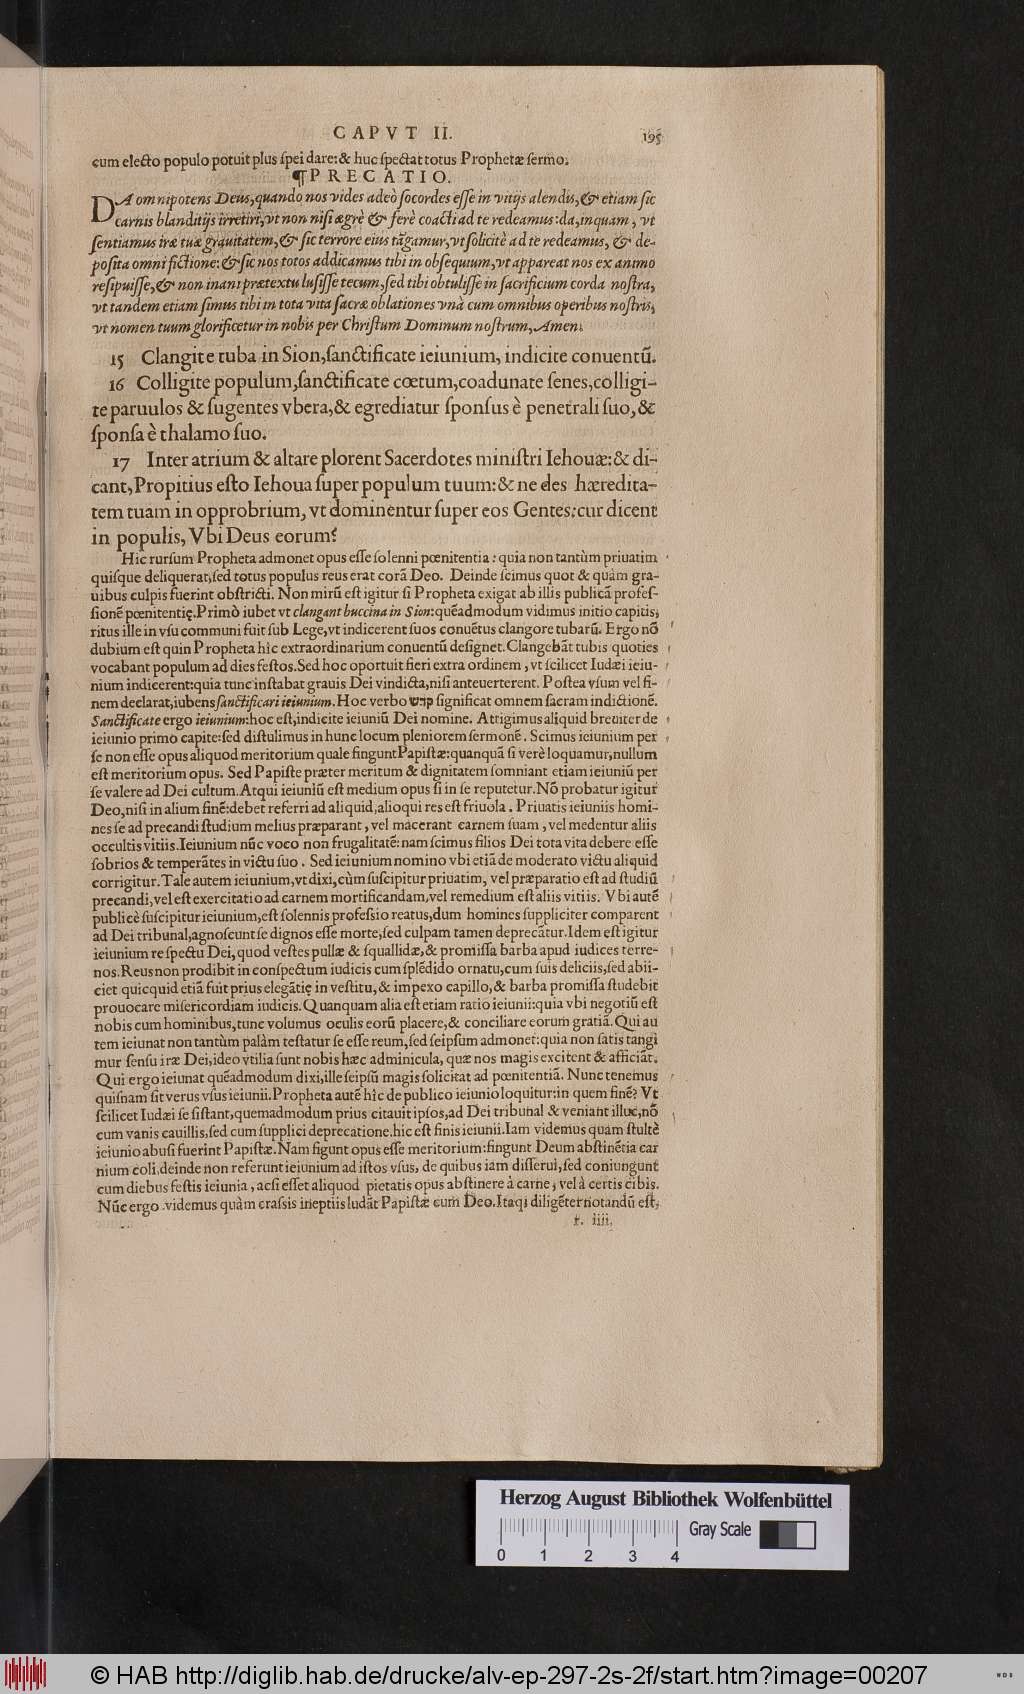 CAPVT II.
195
cum electo populo potuit plus ſpei dare: & huc ſpectat totus Prophetæ ſermo.
¶PRECATIO.
DA omnipotens Deus, quando nos vides adeò ſocordes eſſe in vitijs alendis, & etiam ſic
carnis blanditijs irretiri, vt non niſi ægrè & ferè coacti ad te redeamus: da, inquam, vt
ſentiamus iræ tuæ grauitatem, & ſic terrore eius tãgamur, vt ſolicitè ad te redeamus, & de-
poſita omni fictione: & ſic nos totos addicamus tibi in obſequium, vt appareat nos ex animo
reſipuiſſe, & non inani prætextu luſiſſe tecum, ſed tibi obtuliſſe in ſacrificium corda noſtra,
vt tandem etiam ſimus tibi in tota vita ſacræ oblationes vnà cum omnibus operibus noſtris,
vt nomen tuum glorificetur in nobis per Chriſtum Dominum noſtrum, Amen.
15 Clangite tuba in Sion, ſanctificate ieiunium, indicite conuentũ.
16 Colligite populum, ſanctificate cœtum, coadunate ſenes, colligi-
te paruulos & ſugentes vbera, & egrediatur ſponſus è penetrali ſuo, &
ſponſa è thalamo ſuo.
17 Inter atrium & altare plorent Sacerdotes miniſtri Iehouæ: & di-
cant, Propitius eſto Iehoua ſuper populum tuum: & ne des hæredita-
tem tuam in opprobrium, vt dominentur ſuper eos Gentes: cur dicent
in populis, Vbi Deus eorum?
Hic rurſum Propheta admonet opus eſſe ſolenni pœnitentia: quia non tantùm priuatim
quiſque deliquerat, ſed totus populus reus erat corã Deo. Deinde ſcimus quot & quàm gra-
uibus culpis fuerint obſtricti. Non mirũ eſt igitur ſi Propheta exigat ab illis publicã profeſ-
ſionẽ pœnitentię. Primò iubet vt clangant buccina in Sion: quẽadmodum vidimus initio capitis,
ritus ille in vſu communi fuit ſub Lege, vt indicerent ſuos conuẽtus clangore tubarũ. Ergo nõ
dubium eſt quin Propheta hîc extraordinarium conuentũ deſignet. Clangebãt tubis quoties
vocabant populum ad dies feſtos. Sed hoc oportuit fieri extra ordinem, vt ſcilicet Iudæi ieiu-
nium indicerent: quia tunc inſtabat grauis Dei vindicta, niſi anteuerterent. Poſtea vſum vel fi-
nem declarat, iubens ſanctificari ieiunium. Hoc verbo קדש ſignificat omnem ſacram indictionẽ.
Sanctificate ergo ieiunium: hoc eſt, indicite ieiuniũ Dei nomine. Attigimus aliquid breuiter de
ieiunio primo capite: ſed diſtulimus in hunc locum pleniorem ſermonẽ. Scimus ieiunium per
ſe non eſſe opus aliquod meritorium quale fingunt Papiſtæ: quanquã ſi verè loquamur, nullum
eſt meritorium opus. Sed Papiſte præter meritum & dignitatem ſomniant etiam ieiuniũ per
ſe valere ad Dei cultum. Atqui ieiuniũ eſt medium opus ſi in ſe reputetur. Nõ probatur igitur
Deo, niſi in alium finẽ: debet referri ad aliquid, alioqui res eſt friuola. Priuatis ieiuniis homi-
nes ſe ad precandi ſtudium melius præparant, vel macerant carnem ſuam, vel medentur aliis
occultis vitiis. Ieiunium nũc voco non frugalitatẽ: nam ſcimus filios Dei tota vita debere eſſe
ſobrios & temperãtes in victu ſuo. Sed ieiunium nomino vbi etiã de moderato victu aliquid
corrigitur. Tale autem ieiunium, vt dixi, cùm ſuſcipitur priuatim, vel præparatio eſt ad ſtudiũ
precandi, vel eſt exercitatio ad carnem mortificandam, vel remedium eſt aliis vitiis. Vbi autẽ
publicè ſuſcipitur ieiunium, eſt ſolennis profeſsio reatus, dum homines ſuppliciter comparent
ad Dei tribunal, agnoſcunt ſe dignos eſſe morte, ſed culpam tamen deprecãtur. Idem eſt igitur
ieiunium reſpectu Dei, quod veſtes pullæ & ſquallidæ, & promiſſa barba apud iudices terre-
nos. Reus non prodibit in conſpectum iudicis cum ſplẽdido ornatu, cum ſuis deliciis, ſed abii-
ciet quicquid etiã fuit prius elegãtię in veſtitu, & impexo capillo, & barba promiſſa ſtudebit
prouocare miſericordiam iudicis. Quanquam alia eſt etiam ratio ieiunii: quia vbi negotiũ eſt
nobis cum hominibus, tunc volumus oculis eorũ placere, & conciliare eorum gratiã. Qui au
tem ieiunat non tantùm palàm teſtatur ſe eſſe reum, ſed ſeipſum admonet: quia non ſatis tangi
mur ſenſu iræ Dei, ideo vtilia ſunt nobis hæc adminicula, quæ nos magis excitent & afficiãt.
Qui ergo ieiunat quẽadmodum dixi, ille ſeipſũ magis ſolicitat ad pœnitentiã. Nunc tenemus
quiſnam ſit verus vſus ieiunii. Propheta autẽ hîc de publico ieiunio loquitur: in quem finẽ? Vt
ſcilicet Iudæi ſe ſiſtant, quemadmodum prius citauit ipſos, ad Dei tribunal & veniant illuc, nõ
cum vanis cauillis, ſed cum ſupplici deprecatione. hic eſt finis ieiunii. Iam videmus quam ſtultè
ieiunio abuſi fuerint Papiſtæ. Nam figunt opus eſſe meritorium: fingunt Deum abſtinẽtia car
nium coli. deinde non referunt ieiunium ad iſtos vſus, de quibus iam diſſerui, ſed coniungunt
cum diebus feſtis ieiunia, acſi eſſet aliquod pietatis opus abſtinere à carne, vel à certis cibis.
Nũc ergo videmus quàm craſsis ineptiis ludãt Papiſtæ cum Deo. Itaq; diligẽter notandũ eſt,
r. iiii.
Herzog August Bibliothek Wolfenbüttel
0 1 2 3 4
Gray Scale
© HAB http://diglib.hab.de/drucke/alv-ep-297-2s-2f/start.htm?image=00207
WDB